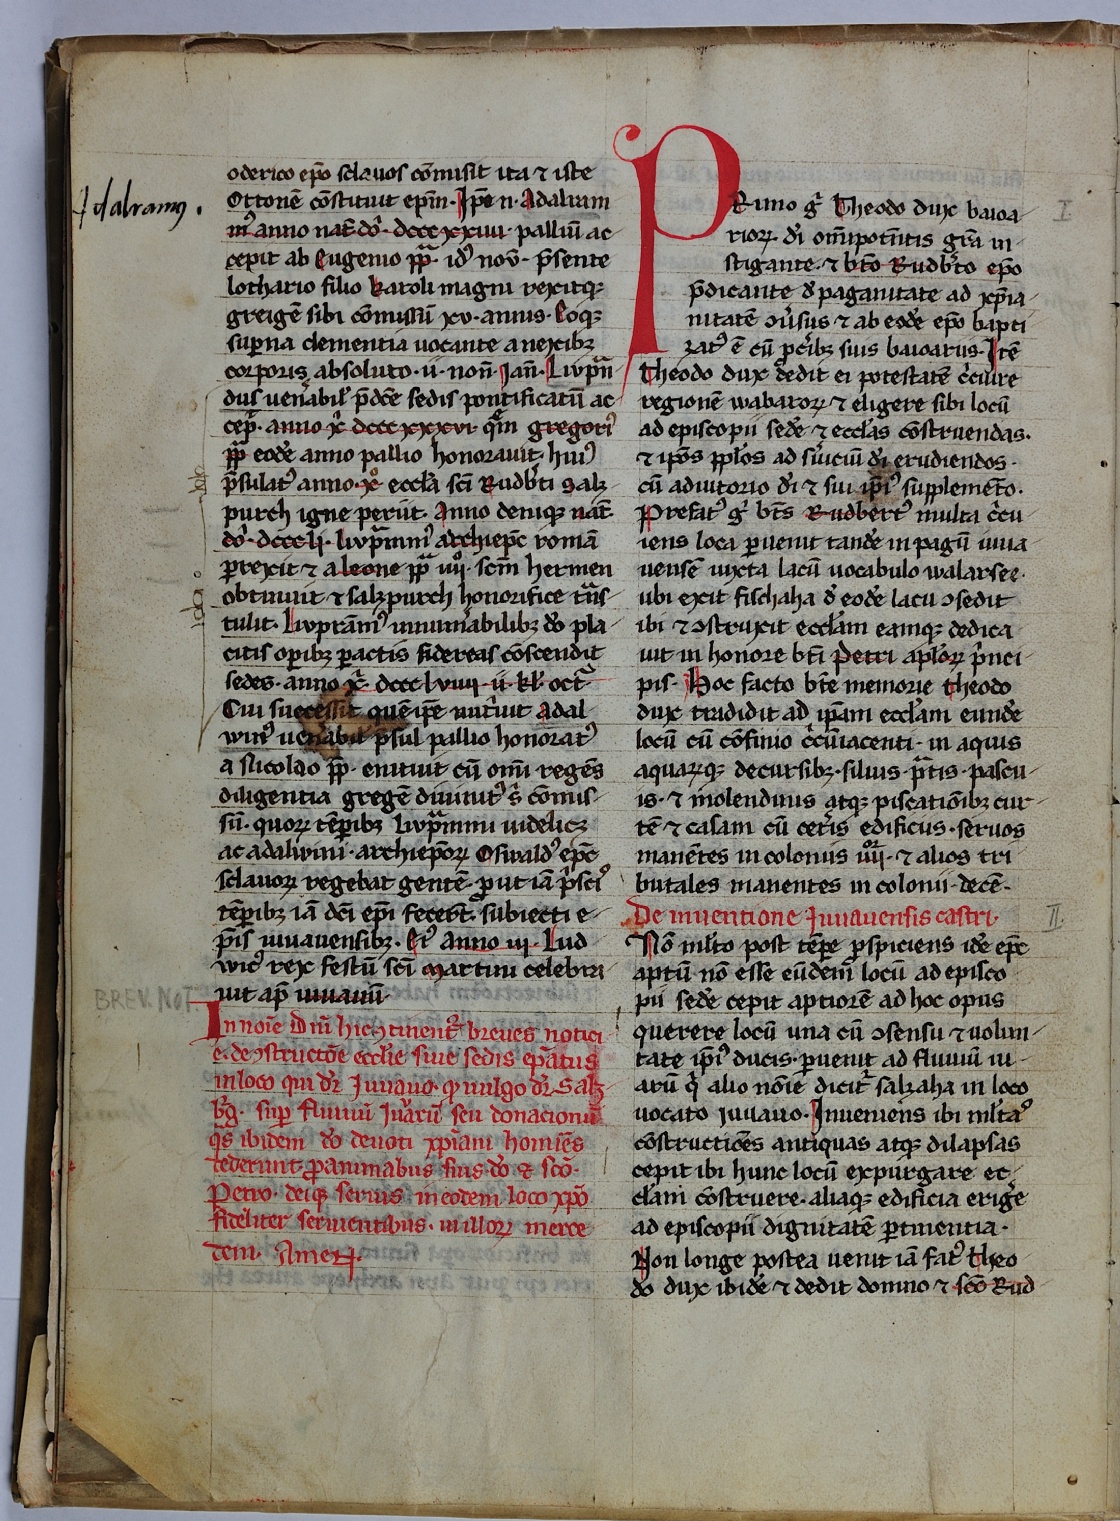 Adalramus.
oderico ep̄o sclauos cōmisit ita ⁊ iste
Ottonē cōstituit ep̄m· Ip̄e n̄· Adalram
m᷒ anno nat̄ dō· dcccxxiiii· palliū ac
cepit ab Eugenio pp̄· id᷒ nov̄· p̄sente
lothario filio karoli magni rexitqꝫ
gregē sibi cōmissū xv· annis· Eoqꝫ
suꝑna clementia uocante a nexibꝫ
corporis absoluto· ii· non̄· Jan̄· Livpn̄
dus uen̄abil᷒ p̄dc̄e sedis pontificatū ac
cep̄· anno x̄· dcccxxxvi qm̄ gregori᷒
pp̄ eodē anno pallio honorauit· hui᷒
p̄sulat᷒ anno· x᷒ eccl̄a sc̄i Rudb̄ti Salz
purch igne periit· Anno deniqꝫ nat̄
dō· dcccli· livpram̄m᷒ archiep̄c romā
ꝑrexit ⁊ a leone pp̄ iiii᷒· sc̄m hermen
obtinuit ⁊ salzpurch honorifice t̄ns
tulit· Livprām᷒ innum̄abilibꝫ dō pla
citis oꝑibꝫ ꝑactis sidereas cōscendit
sedes· anno x̄· dccclviiii· ii· kl̄· oct̄
Cui successit quē ip̄e nut̄uit Adal
win᷒ uen̄abil᷒ p̄sul pallio honorat᷒
a Nicolao pp̄· enituit cū om̄i regēs
diligentia gregē diuinit᷒ s̄ cōmis
sū· quoꝝ tēꝑibꝫ livpram̄mi uidelicꝫ
ac adalwini· archiep̄oꝝ Oswald᷒ ep̄c
sclauoꝝ regebat gentē· ꝓut iā p̄sc̄i᷒
tēꝑibꝫ iā dc̄i ep̄i fecer̄t· subiecti e
p̄is iuuauensibꝫ· Et᷒ anno iii· Lud
wic᷒ rex festū sc̄i martini celebra
uit ap̄ iuuauū·
BREV. NOT.
In noīe Dn̄i hic ɔtinent᷒ breues notici
e· de ɔstructōe eccl̄ie siue sedis ep̄atus
in loco qui dr̄ Juuauo· ꝙ uulgo dr̄ Salz
b̄g· sup̄ fluuiū Juarū seu donacionū
q̄s ibidem dō deuoti xp̄iani homīes
tederunt ꝓ animabus suis dō et sc̄o·
Petro· deiqꝫ seruis in eodem loco xp̄o
fideliter seruientibus· in illoꝝ merce
dem· Amen·
I
PRimo g̊ Theodo dux baioa
rioꝝ· di om̄ipotn̄tis gr̄a in
stigante· ⁊ bt̄o Rudb̄to ep̄o
p̄dicante d̄ paganitate ad xp̄ia
nitatē ɔūsus ⁊ ab eodē ep̄o bapti
zat᷒ ē cū pc̄ibꝫ suis baioariis· Itē
Theodo dux dedit ei potestatē c̄cuire
regionē wabaroꝝ ⁊ eligere sibi locū
ad episcopii sedē ⁊ eccl̄as cōstruendas·
⁊ ip̄os ppl̄os ad s̄uiciū di erudiendos·
cū adiutorio di ⁊ sui ip̄i᷒ supplemēto·
Prefat᷒ g̊ bt̄s Rudbert᷒ multa c̄cu
iens loca ꝑuenit tandē in pagū iuua
uensē iuxta lacū uocabulo walarsee·
ubi exit fischaha d̄ eodē lacu ɔsedit
ibi ⁊ ɔstruxit eccl̄am eamqꝫ dedica
uit in honore bt̄i Petri apl̄oꝝ p̄nci
pis· Hoc facto bt̄e memorie Theodo
dux tradidit ad ip̄am eccl̄am eundē
locū cū cōfinio c̄cūiacenti· in aquis
aquarꝫqꝫ decursibꝫ· siluis· p̄tis· pascu
is· ⁊ molendinis atqꝫ piscatiōibꝫ cur
tē ⁊ casam cū cet̄is edificiis· seruos
manētes in coloniis iiii᷒· ⁊ alios tri
butales manentes in colonii· decē·
II.
De inuentione Juuauensis castri·
Nō ml̄to post tēpe ꝑspiciens idē ep̄c
aptū nō esse eūdem locū ad episco
pii sedē cepit aptiorē ad hoc opus
querere locū una cū ɔsensu ⁊ uolun
tate ip̄i᷒ ducis· ꝑuenit ad fluuiū iu
arū q̄ alio nōie dicit᷒ salzaha in loco
uocato Juuauo· Inueniens ibi ml̄ta᷒
cōstructiōes antiquas atqꝫ dilapsas
cepit ibi hunc locū expurgare ec
cl̄am cōstruere· aliaqꝫ edificia erigē
ad episcopii dignitatē ꝑtinentia·
Non longe postea uenit iā fat᷒ Theo
do dux ibidē ⁊ dedit domno ⁊ sc̄o Rud